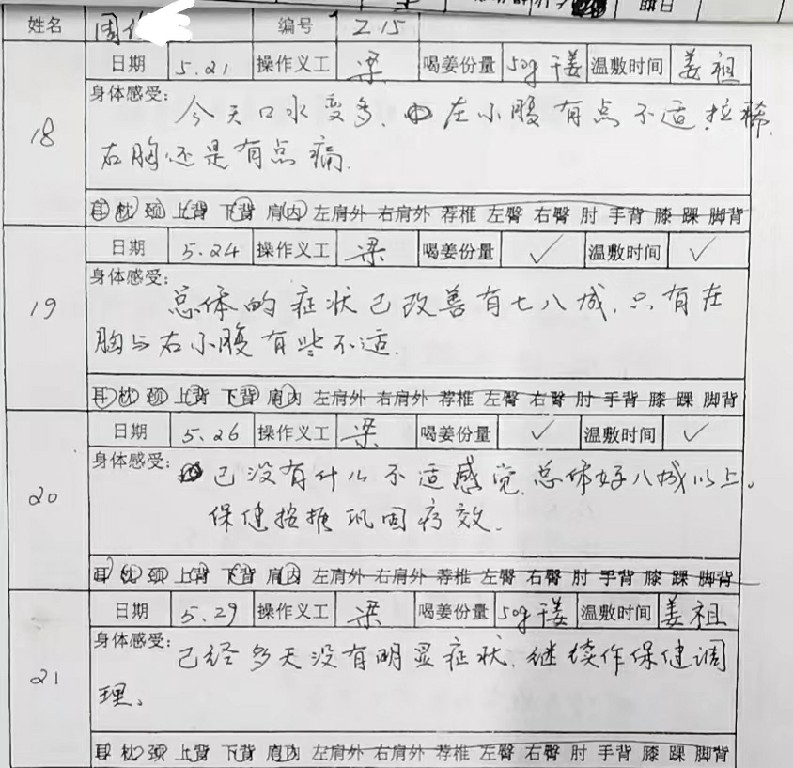 姓名 周 编号 Z15
18 日期 5.21 操作义工 梁 喝姜份量 50g干姜 温敷时间 姜祖
身体感受:
今天口水变多, 左小腹有点不适,拉稀,
右胸还是有点痛.
耳 枕 颈 上背 下背 肩内 左肩外 右肩外 荐椎 左臀 右臀 肘 手背 膝 踝 脚背
19 日期 5.24 操作义工 梁 喝姜份量 ✓ 温敷时间 ✓
身体感受:
总体的症状已改善有七八城,只有在
胸与右小腹有些不适.
耳 枕 颈 上背 下背 肩内 左肩外 右肩外 荐椎 左臀 右臀 肘 手背 膝 踝 脚背
20 日期 5.26 操作义工 梁 喝姜份量 ✓ 温敷时间 ✓
身体感受:
已没有什么不适感觉,总体好八城以上。
保健按推巩固疗效.
耳 枕 颈 上背 下背 肩内 左肩外 右肩外 荐椎 左臀 右臀 肘 手背 膝 踝 脚背
21 日期 5.29 操作义工 梁 喝姜份量 50g干姜 温敷时间 姜祖
身体感受:
已经多天没有明显症状.继续作保健调
理。
耳 枕 颈 上背 下背 肩内 左肩外 右肩外 荐椎 左臀 右臀 肘 手背 膝 踝 脚背